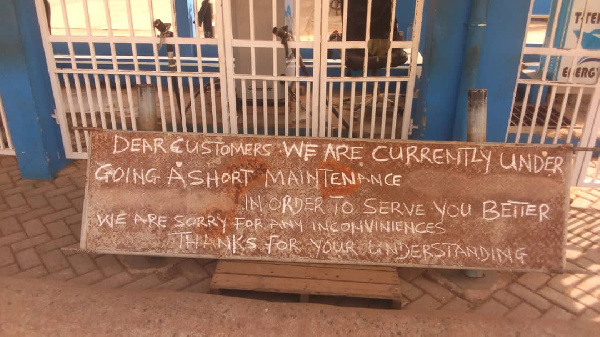 DEAR CUSTOMERS WE ARE CURRENTLY UNDER
GOING A SHORT MAINTENANCE
IN ORDER TO SERVE YOU BETTER
WE ARE SORRY FOR ANY INCONVINIENCES
THANKS FOR YOUR UNDERSTANDING
ENERGY